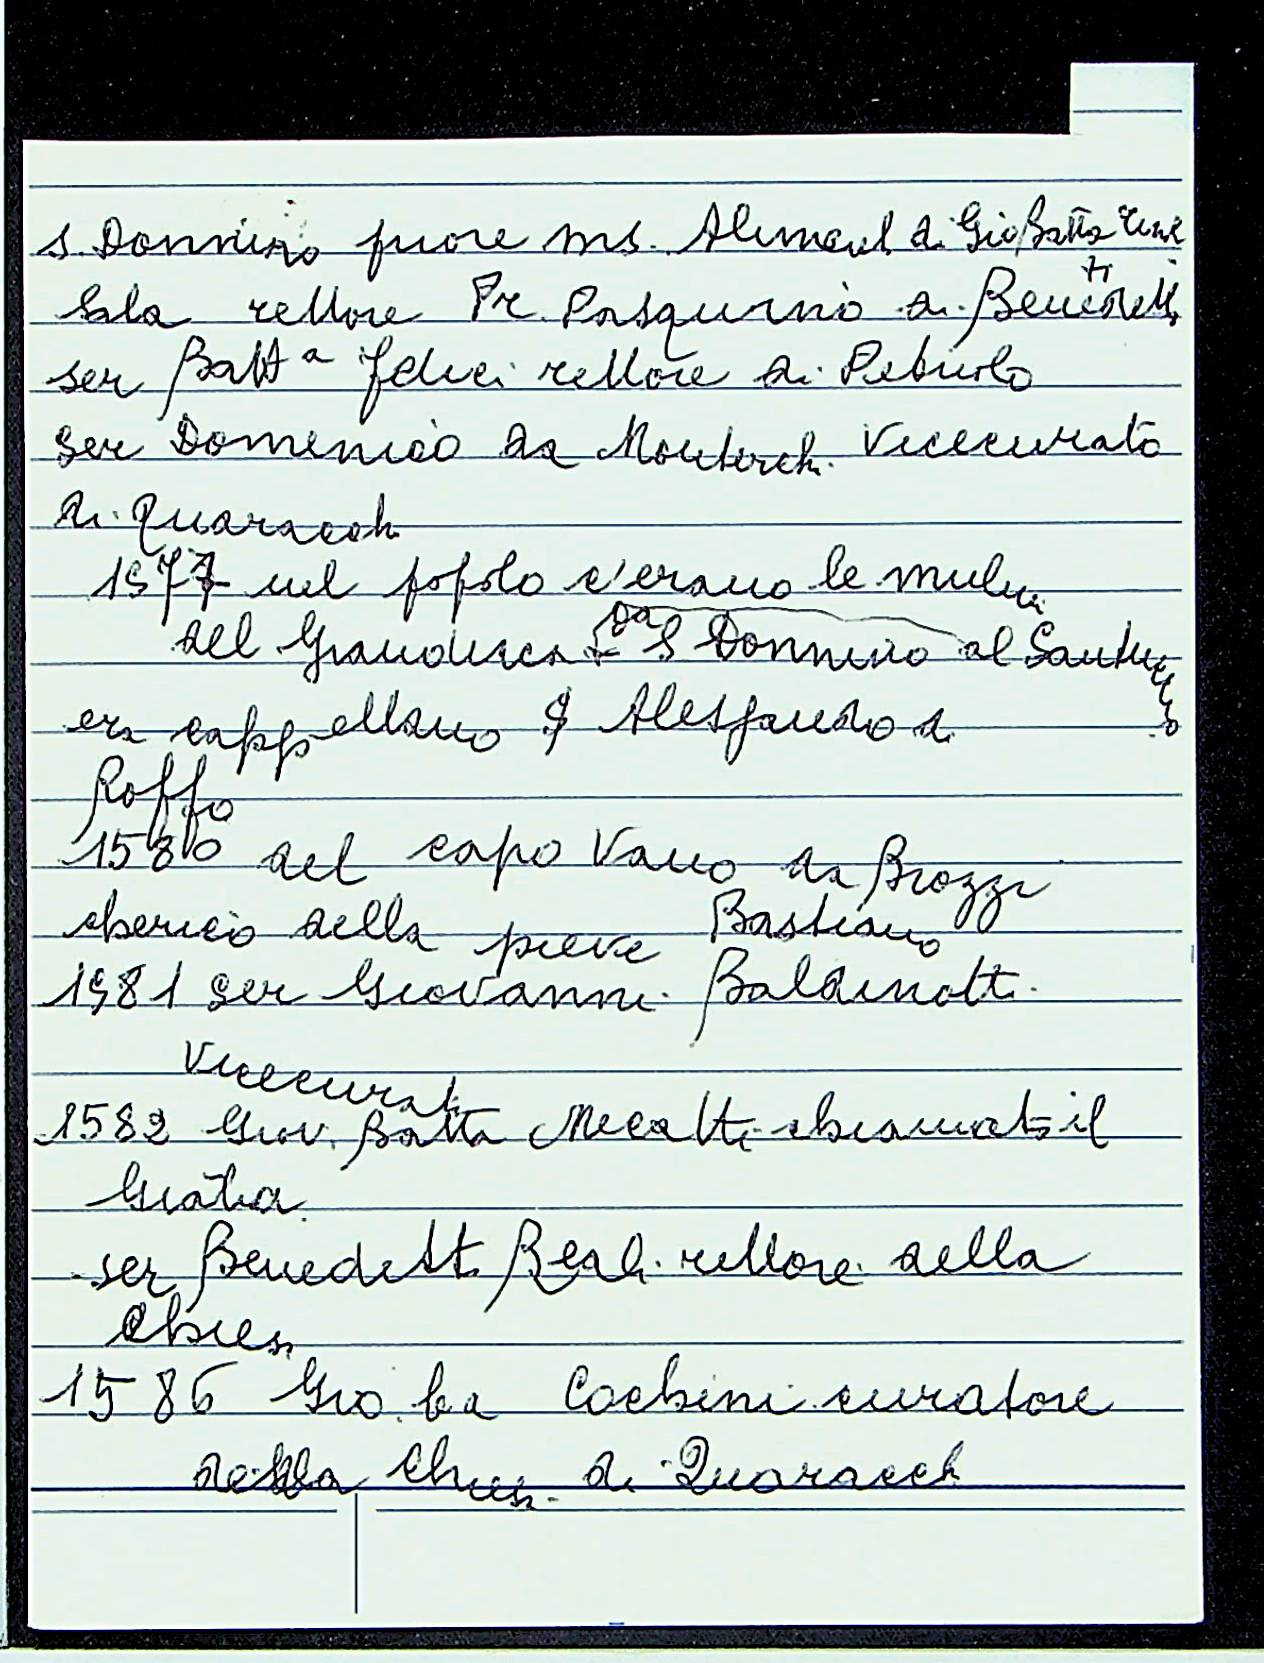 S. Donnino priore ms. di Gio Batta
Sala rettore Pr. Pasquino di Benedetti
ser Batta Felici rettore di Petriolo
ser Domenico da Monterchi Vicecurato
di Quaracchi
1577 nel popolo c'erano le muline
del Granduca da S Donnino al Santuccio
era cappellano S Alessandro di
Roffo
1580 del capo Vano da Brozzi
cherico della pieve Bastiano
1581 ser Giovanni Baldinotti
Vicecurato
1582 Giov. Batta Mecatti chiamato il
Gratia
ser Benedetto Reali rettore della
chiesa
1586 Gio. ba Cochini curatore
della chiesa di Quaracchi